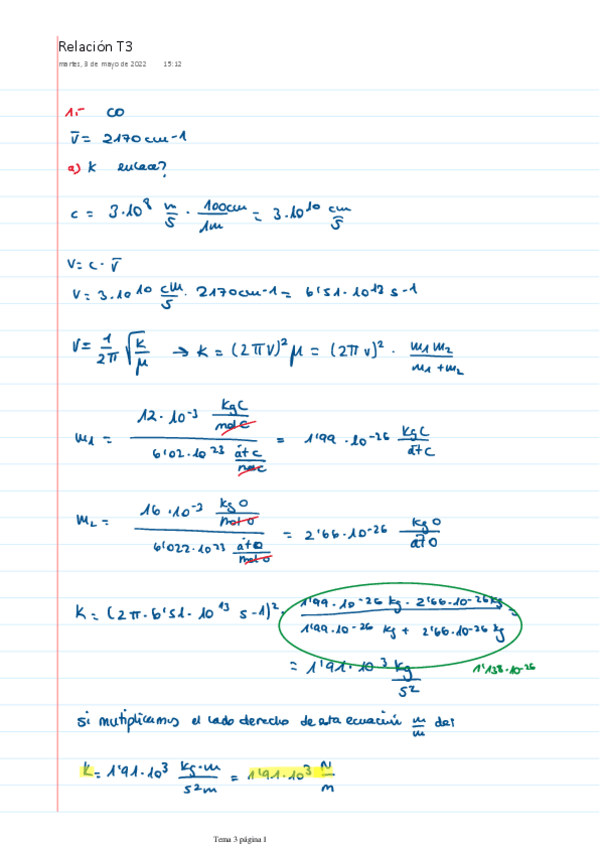 Relación T3
martes, 8 de mayo de 2022 15:12
1.- CO
ν̄ = 2170 cm-1
a) k enlace?
c = 3·10^8 m/s · 100cm/1m = 3·10^10 cm/s
ν = c · ν̄
ν = 3·10^10 cm/s · 2170cm-1 = 6'51·10^13 s-1
ν = 1/2π √(k/μ) → k = (2πν)^2 μ = (2πν)^2 · m1m2/m1+m2
m1 = 12·10^-3 kgC/mol C / 6'02·10^23 átC/mol C = 1'99·10^-26 kgC/átC
m2 = 16·10^-3 kgO/mol O / 6'022·10^23 átO/mol O = 2'66·10^-26 kgO/átO
K = (2π·6'51·10^13 s-1)^2 · 1'99·10^-26 kg · 2'66·10^-26 kg / 1'99·10^-26 kg + 2'66·10^-26 kg =
= 1'91·10^3 kg/s^2 1'138·10^-26
si mutiplicamos el lado derecho de esta ecuación m/m de:
k = 1'91·10^3 kg·m/s^2m = 1'91·10^3 N/m
Tema 3 página 1